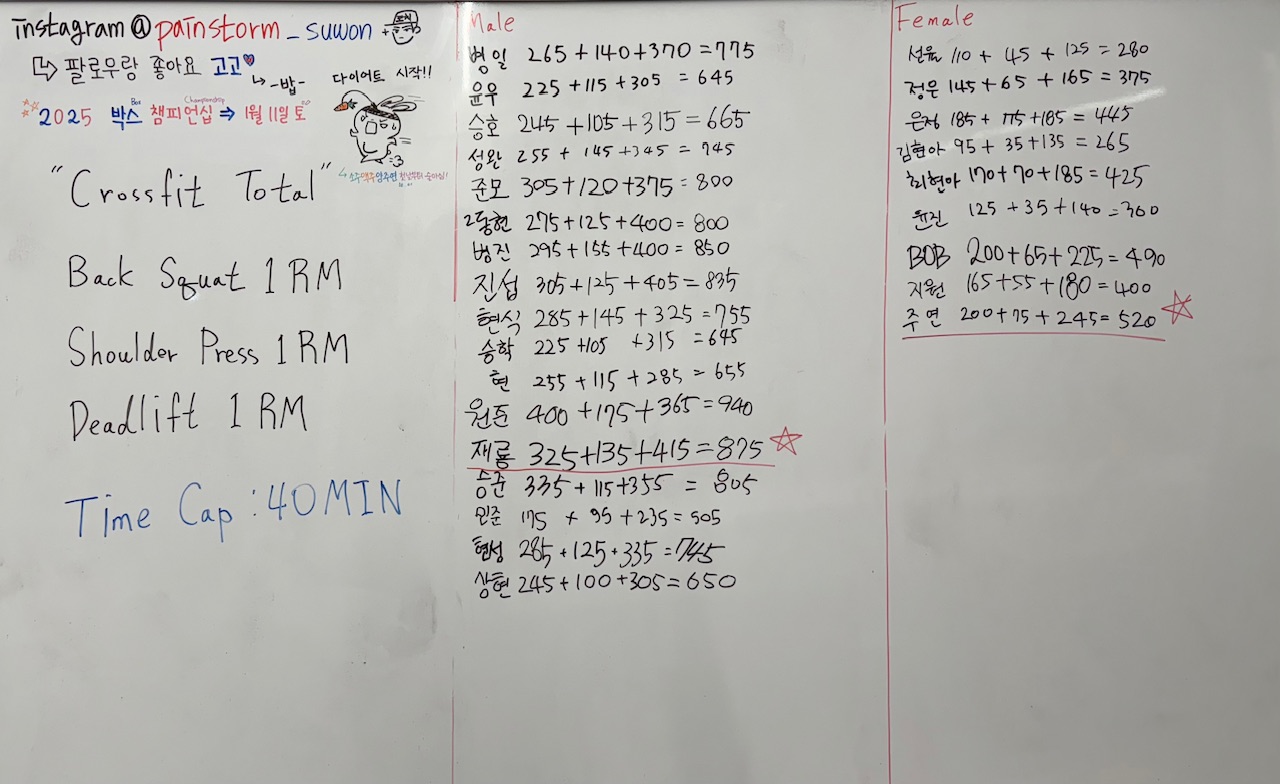 instagram@painstorm_suwon
팔로우랑 좋아요 고고
-밥-
다이어트 시작!!
Box Championship
2025 박스 챔피언십 ⇒ 1월 11일 토
"Crossfit Total"
Back Squat 1RM
Shoulder Press 1RM
Deadlift 1RM
Time Cap : 40MIN
Male
병일 265+140+370=775
윤우 225+115+305=645
승호 245+105+315=665
성완 255+145+345=745
준모 305+120+375=800
2동현 275+125+400=800
병진 295+155+400=850
진섭 305+125+405=835
현식 285+145+325=755
승학 225+105+315=645
현 255+115+285=655
원준 400+175+365=940
재룡 325+135+415=875
승준 335+115+355=805
민준 175+95+235=505
형성 285+125+335=745
상현 245+100+305=650
Female
선율 110+45+125=280
정은 145+65+165=375
은정 185+75+185=445
김현아 95+35+135=265
최현아 170+70+185=425
윤진 125+35+140=300
BOB 200+65+225=490
지원 165+55+180=400
주연 200+75+245=520